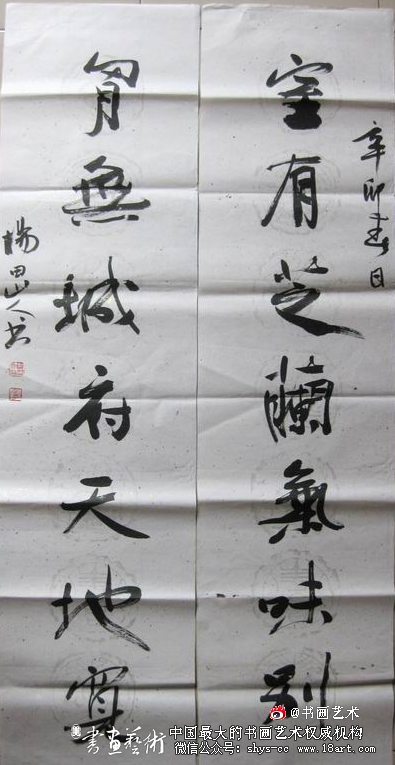 辛卯春日
室有芝蘭氣味別
胷無城府天地寬
楊田山人书
@书画艺术
書畫藝術
中国最大的书画艺术权威机构
微信公众号: shys-cc www.18art.com